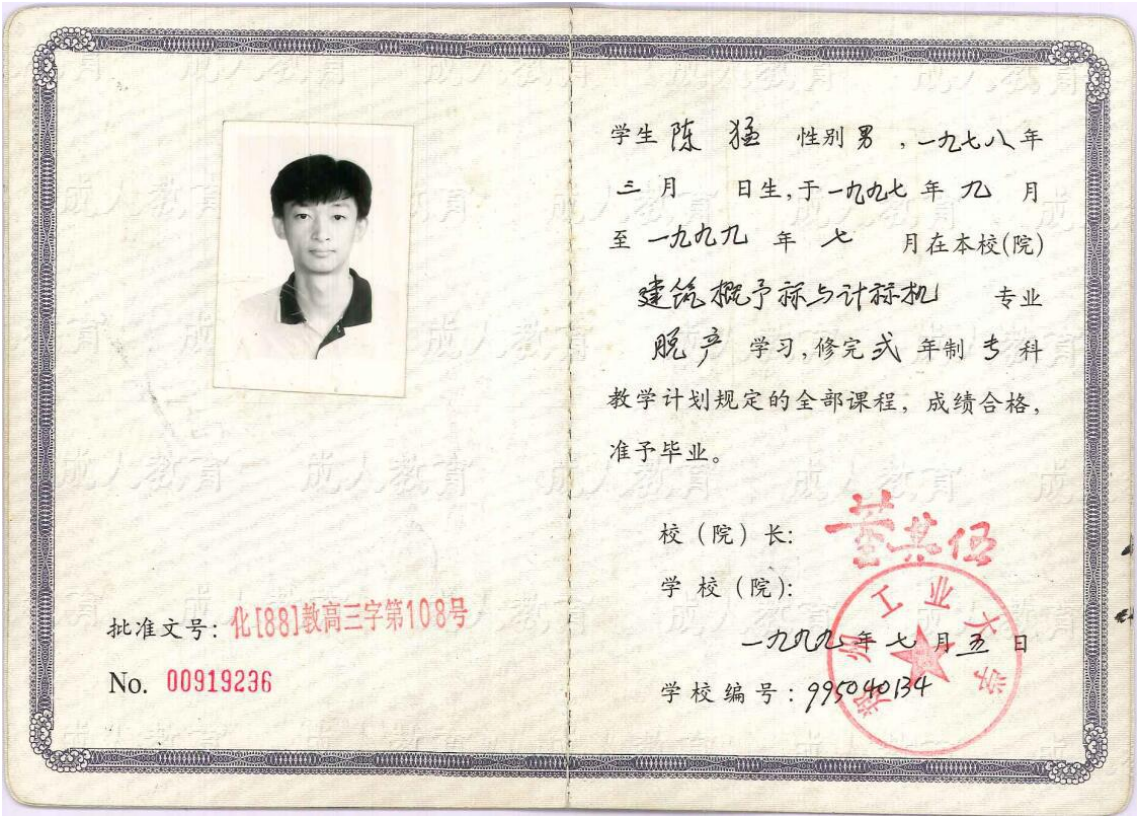 批准文号：化[88]教高三字第108号
No. 00919236
学生 陈 猛 性别 男 ，一九七八年
三 月 日生,于一九九七 年 九 月
至 一九九九 年 七 月在本校(院)
建筑概予祘与计祘机 专业
脱产 学习,修完 弍 年制 专 科
教学计划规定的全部课程，成绩合格，
准予毕业。
校（院）长: 董其伍
学 校（院）:
郑州工业大学
一九九九 年 七 月 五 日
学校编号：995040134
成人教育